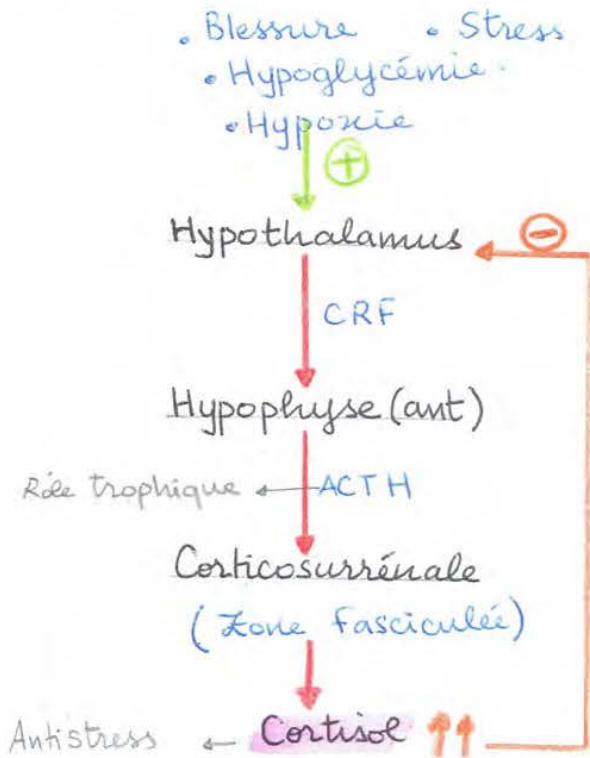 • Blessure • Stress
• Hypoglycémie.
• Hypoxie
+
Hypothalamus
-
CRF
Hypophyse (ant)
Rôle trophique ← ACTH
Corticosurrénale
(Zone fasciculée)
Antistress ← Cortisol ↑↑